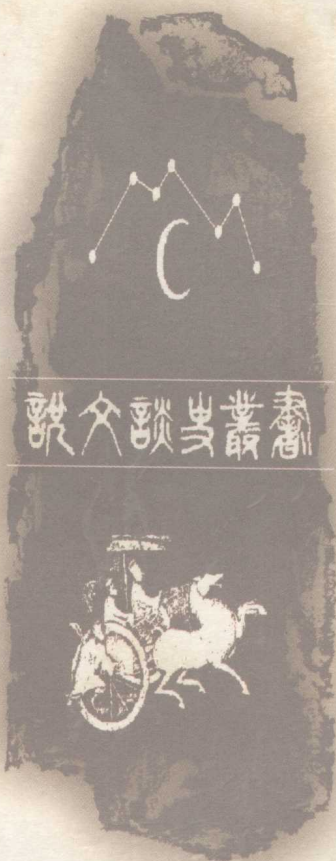 說文談史叢書